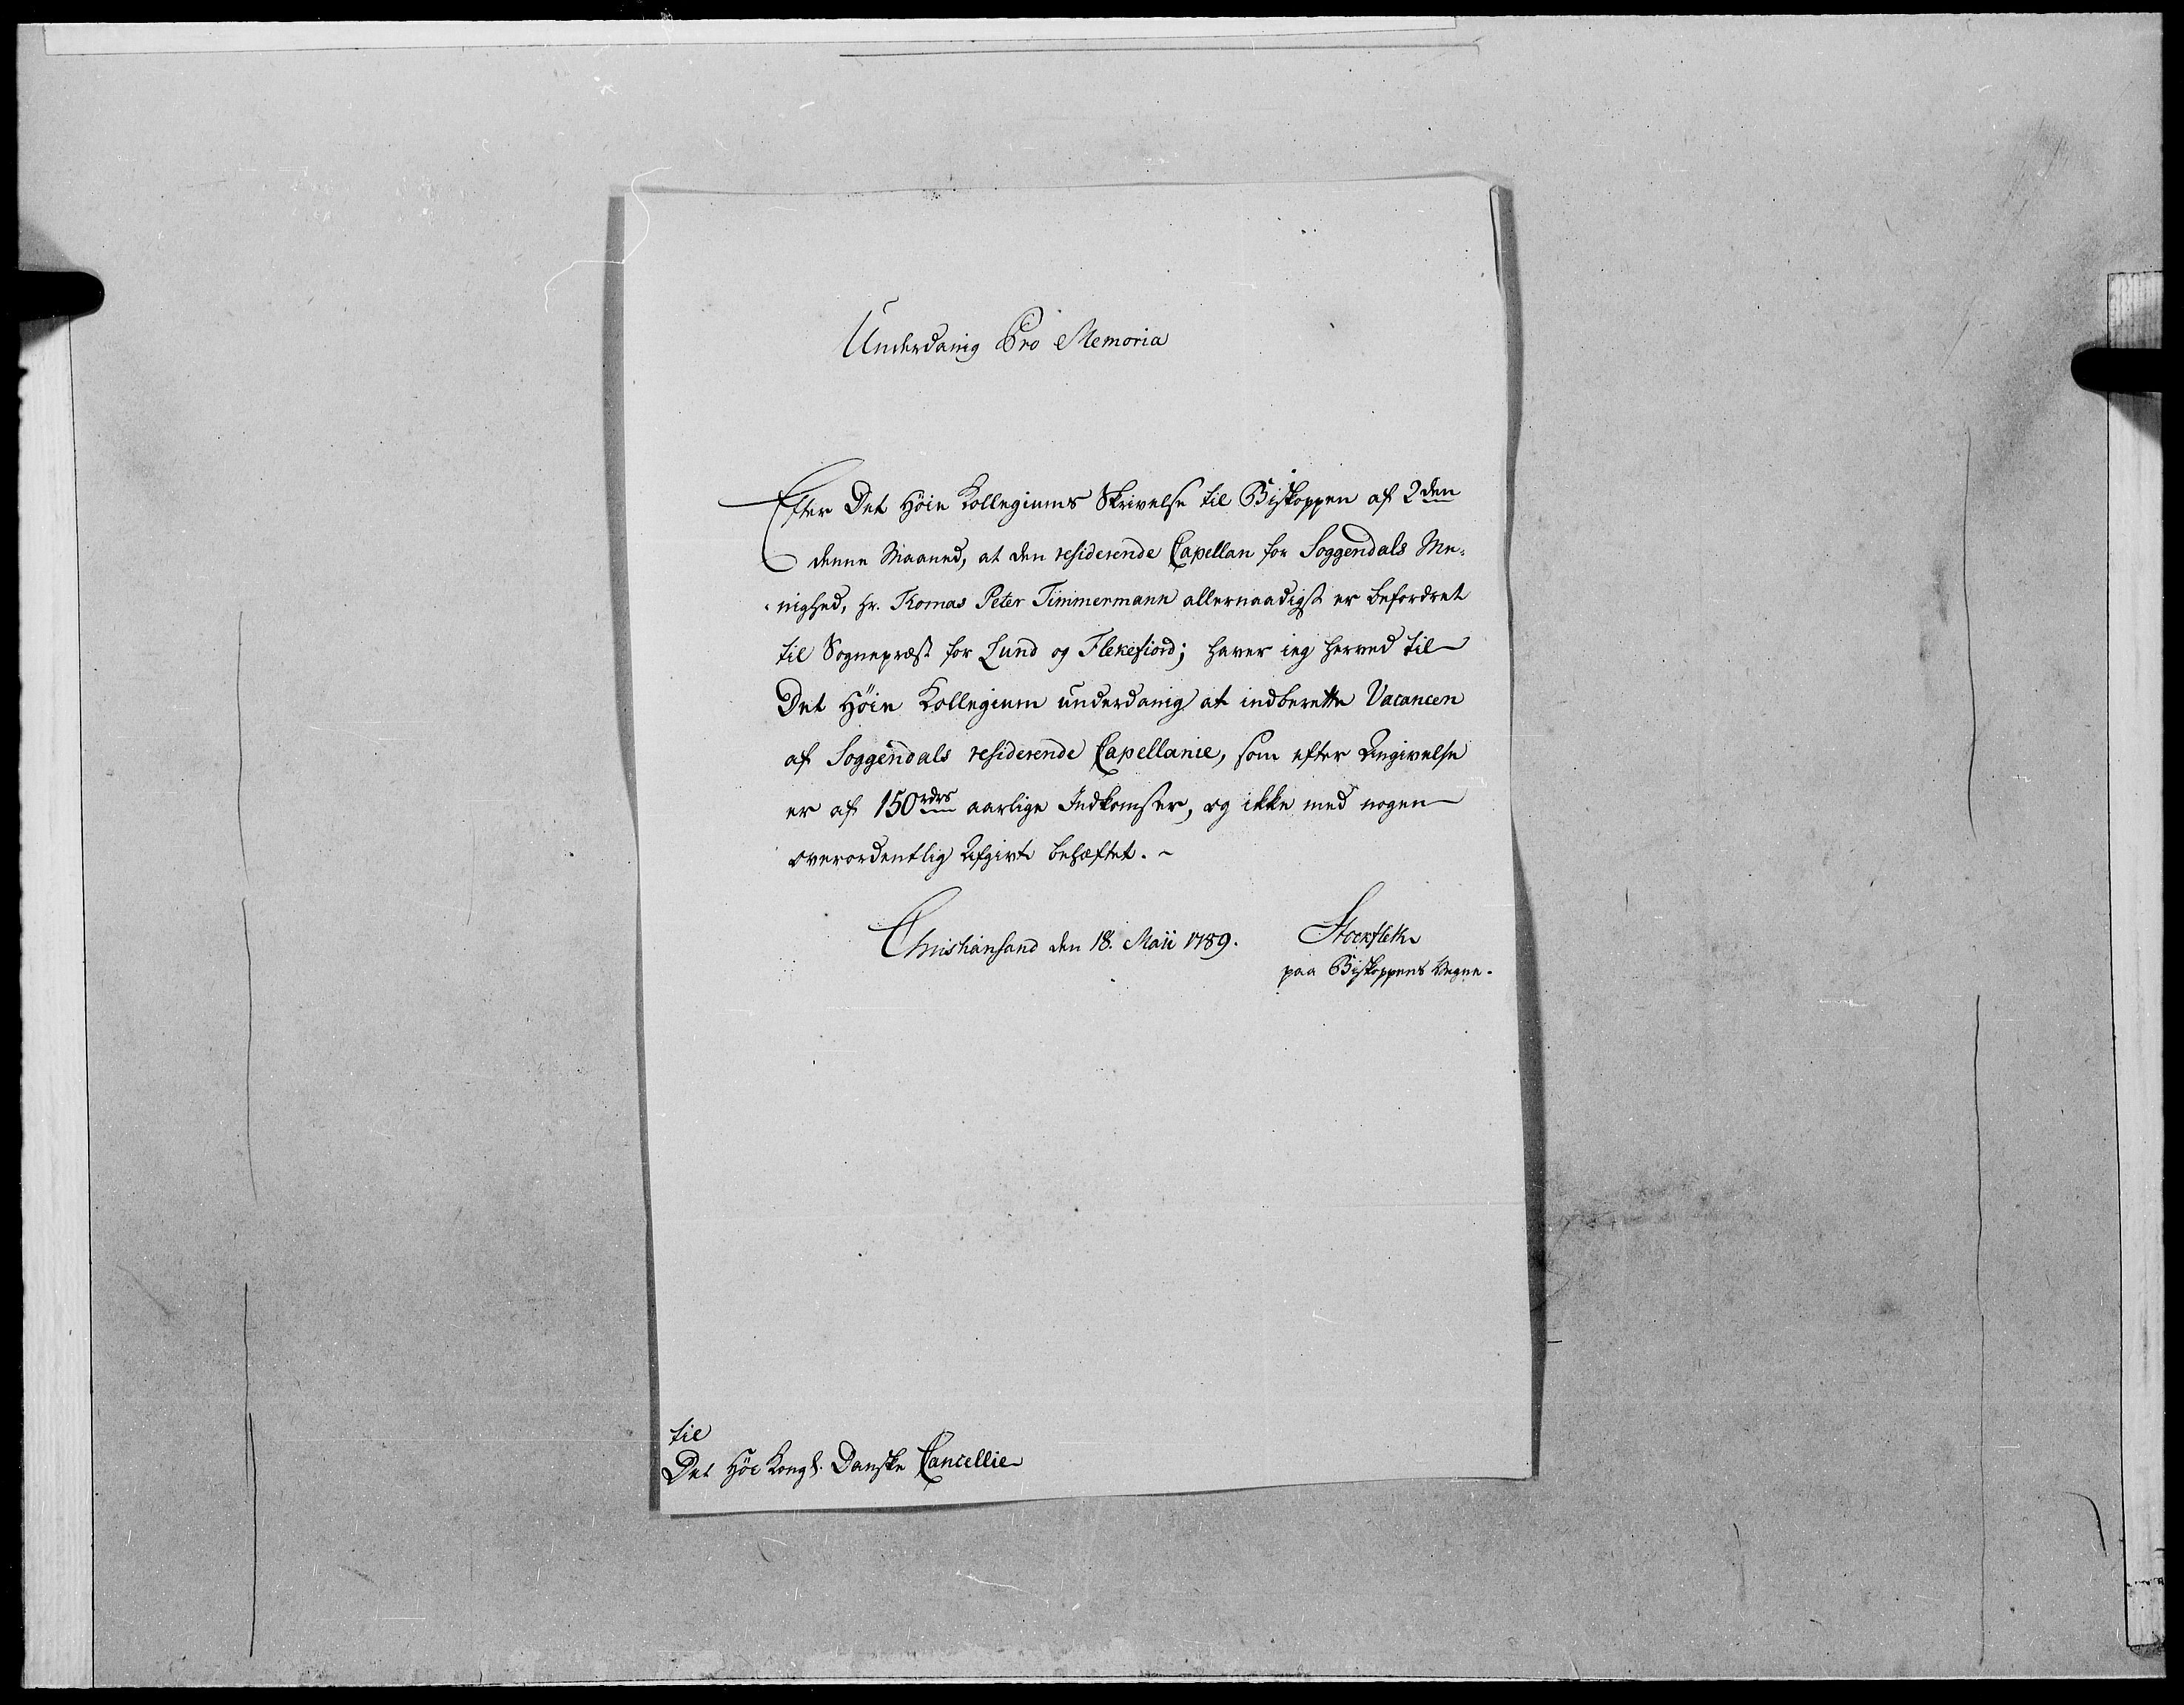 Underdanig Pro Memoria
Efter Det Høie Kollegiums Skrivelse til Biskoppen af 2den
denne Maaned, at den residerende Capellan for Soggendals Me-
nighed, Hr. Thomas Peter Timmermann allernaadigst er befordret
til Sognepræst for Lund og Flekefiord; haver ieg herved til
Det Høie Kollegium underdanig at indberette Vacancen
af Soggendals residerende Capellanie, som efter Angivelse
er af 150 rdrs aarlige Indkomster, og ikke med nogen
overordentlig Afgivt behæftet.
Christiansand den 18. Maii 1789. Stockfleth
paa Biskoppens Vegne.
til
Det Høie Kongl. Danske Cancellie